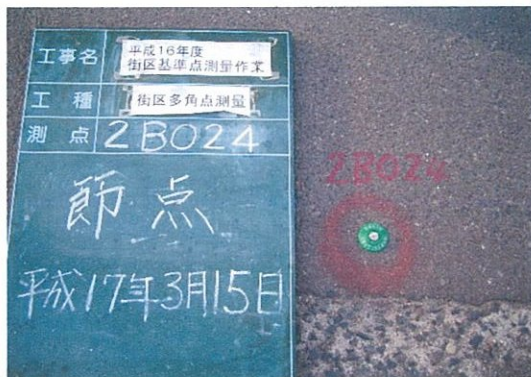 工事名
平成16年度
街区基準点測量作業
工種
街区多角点測量
測点
2B024
節点
平成17年3月15日
2B024